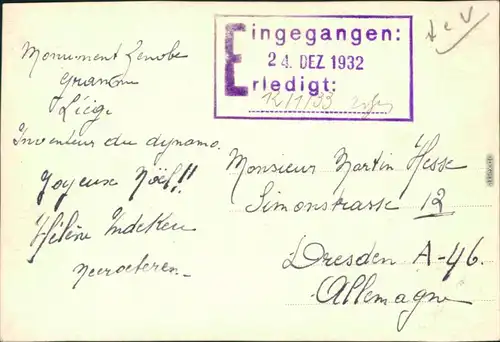 Monument Zenobe
Gramme
Liége
Inventeur du dynamo.
Joyeux Noël!!
Hélène Indekeu
Neeroeteren
Eingegangen:
24. DEZ 1932
Erledigt:
12/1/33
Monsieur Martin Hesse
Simonstrasse 12
Dresden A-46.
Allemagne